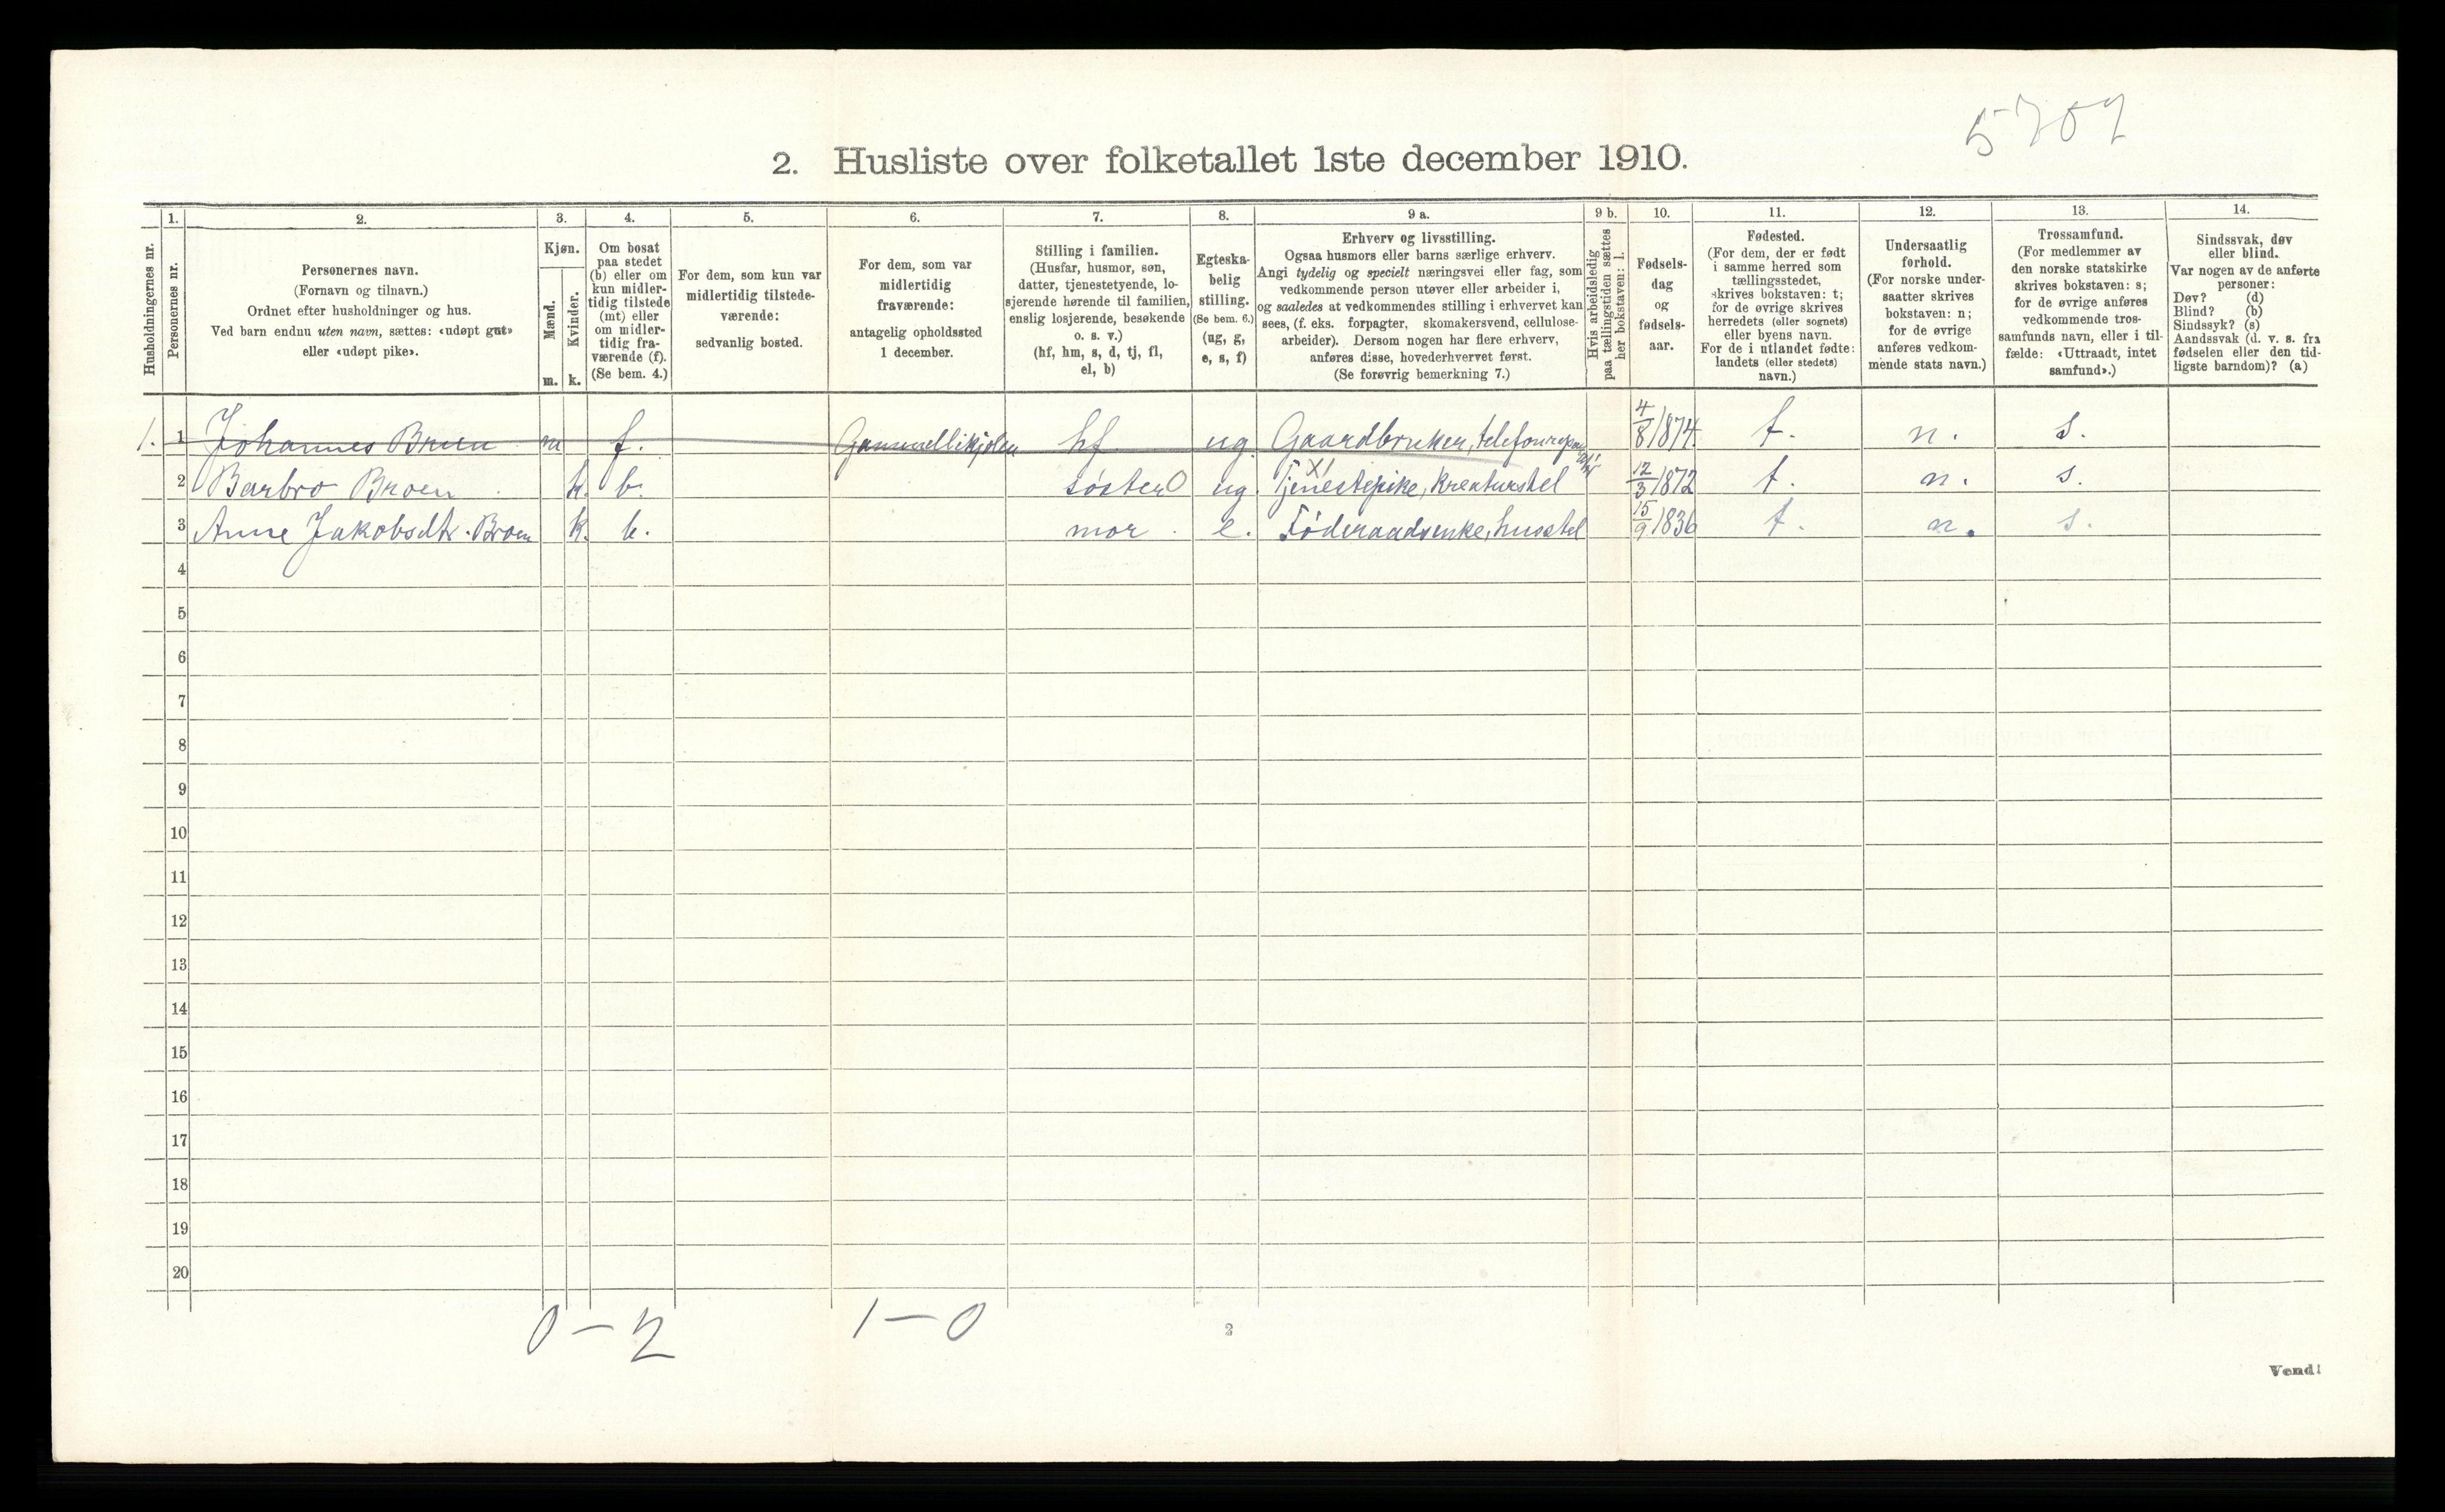 5707
2. Husliste over folketallet 1ste december 1910.
Husholdningernes nr.
1.
Personernes nr.
2.
Personernes navn.
(Fornavn og tilnavn.)
Ordnet efter husholdninger og hus.
Ved barn endnu uten navn, sættes: «udøpt gut»
eller «udøpt pike».
3.
Kjøn.
Mænd.
m.
Kvinder.
k.
4.
Om bosat
paa stedet
(b) eller om
kun midler-
tidig tilstede
(mt) eller
om midler-
tidig fra-
værende (f).
(Se bem. 4.)
5.
For dem, som kun var
midlertidig tilstede-
værende:
sedvanlig bosted.
6.
For dem, som var
midlertidig
fraværende:
antagelig opholdssted
1 december.
7.
Stilling i familien.
(Husfar, husmor, søn,
datter, tjenestetyende, lo-
sjerende hørende til familien,
enslig losjerende, besøkende
o. s. v.)
(hf, hm, s, d, tj, fl,
el, b)
8.
Egteska-
belig
stilling.
(Se bem. 6.)
(ug, g,
e, s, f)
9 a.
Erhverv og livsstilling.
Ogsaa husmors eller barns særlige erhverv.
Angi tydelig og specielt næringsvei eller fag, som
vedkommende person utøver eller arbeider i,
og saaledes at vedkommendes stilling i erhvervet kan
sees, (f. eks. forpagter, skomakersvend, cellulose-
arbeider). Dersom nogen har flere erhverv,
anføres disse, hovederhvervet først.
(Se forøvrig bemerkning 7.)
9 b.
Hvis arbeidsledig
paa tællingstiden sættes
her bokstaven: l.
10.
Fødsels-
dag
og
fødsels-
aar.
11.
Fødested.
(For dem, der er født
i samme herred som
tællingsstedet,
skrives bokstaven: t;
for de øvrige skrives
herredets (eller sognets)
eller byens navn.
For de i utlandet fødte:
landets (eller stedets)
navn.)
12.
Undersaatlig
forhold.
(For norske under-
saatter skrives
bokstaven: n;
for de øvrige
anføres vedkom-
mende stats navn.)
13.
Trossamfund.
(For medlemmer av
den norske statskirke
skrives bokstaven: s;
for de øvrige anføres
vedkommende tros-
samfunds navn, eller i til-
fælde: «Uttraadt, intet
samfund».)
14.
Sindssvak, døv
eller blind.
Var nogen av de anførte
personer:
Døv? (d)
Blind? (b)
Sindssyk? (s)
Aandssvak (d. v. s. fra
fødselen eller den tid-
ligste barndom)? (a)
1. 1 Johannes Bruen m f. hf ug. Gaardbruker, 4/8 1874 t. n. s.
2 Barbro Broen k. b. søster O ug. Tjenestepike, Kreaturstel 12/3 1872 t. n. s.
3 Anne Jakobsdtr. Broen k. b. mor e. Føderaadsenke, husstel 15/9 1836 t. n. s.
4
5
6
7
8
9
10
11
12
13
14
15
16
17
18
19
20
0 – 2 1 – 0
2
Vend!